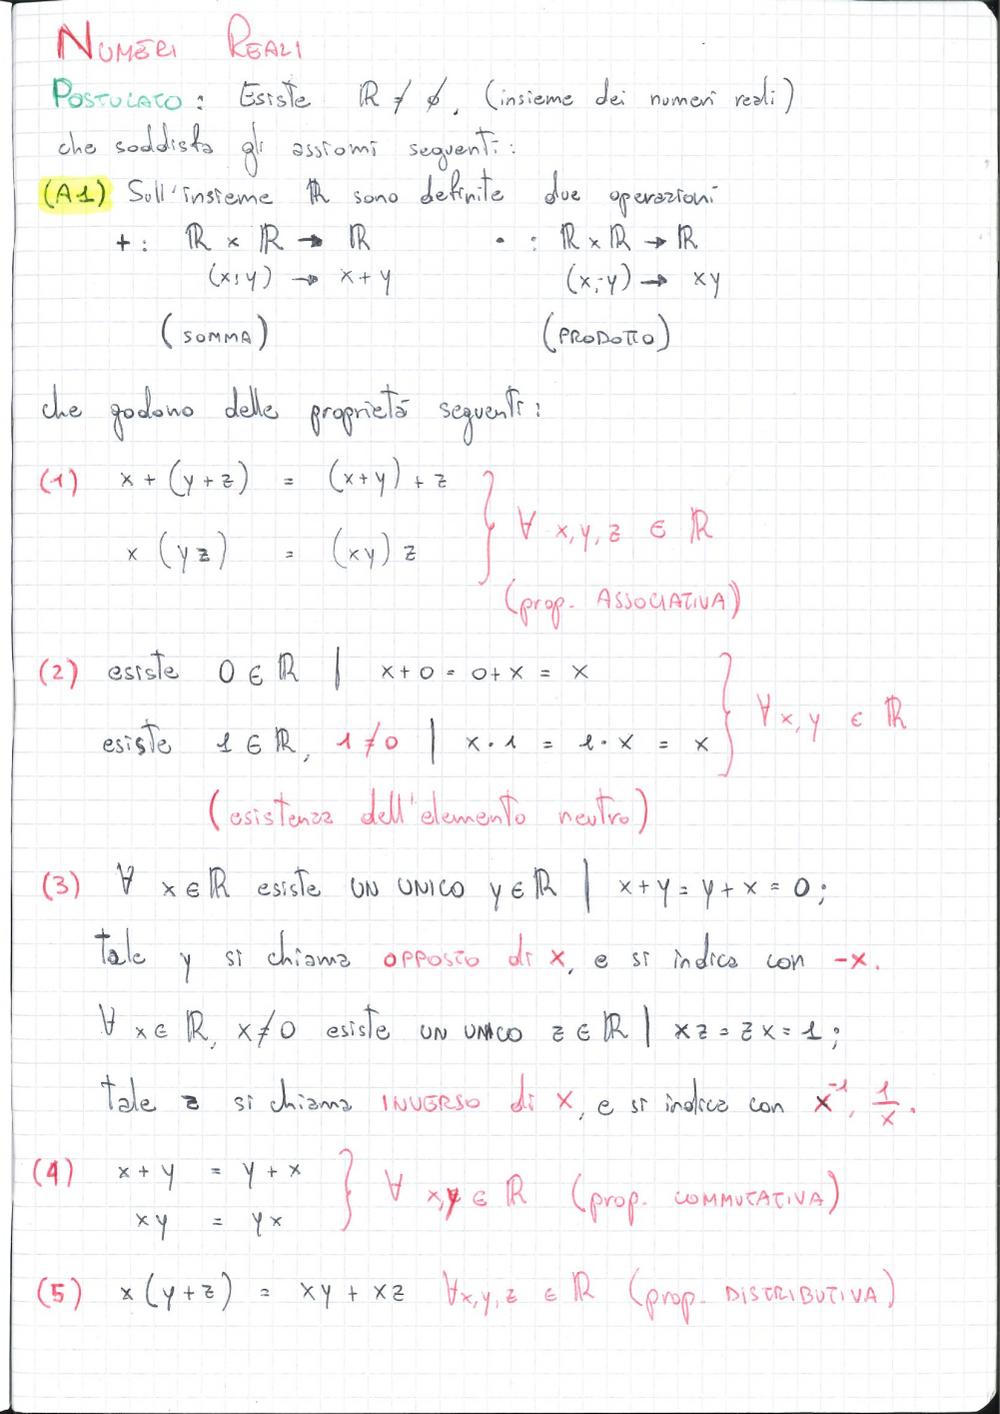 NUMERI REALI
POSTULATO: Esiste ℝ ≠ ∅, (insieme dei numeri reali)
che soddisfa gli assiomi seguenti:
(A1) Sull'insieme ℝ sono definite due operazioni
+ : ℝ × ℝ → ℝ   • : ℝ × ℝ → ℝ
(x;y) → x+y   (x;y) → xy
(SOMMA)   (PRODOTTO)
che godono delle proprietà seguenti:
(1) x + (y+z) = (x+y) + z
x (yz) = (xy) z } ∀ x,y,z ∈ ℝ
(prop. ASSOCIATIVA)
(2) esiste 0 ∈ ℝ | x+0 = 0+x = x
esiste 1 ∈ ℝ, 1≠0 | x·1 = 1·x = x } ∀x,y ∈ ℝ
(esistenza dell'elemento neutro)
(3) ∀ x∈ℝ esiste UN UNICO y∈ℝ | x+y = y+x = 0;
tale y si chiama OPPOSTO di x, e si indica con -x.
∀ x∈ℝ, x≠0 esiste UN UNICO z∈ℝ | xz = zx = 1;
tale z si chiama INVERSO di x, e si indica con x⁻¹, 1/x.
(4) x+y = y+x
xy = yx } ∀ x,y ∈ ℝ (prop. COMMUTATIVA)
(5) x(y+z) = xy + xz ∀x,y,z ∈ ℝ (prop. DISTRIBUTIVA)